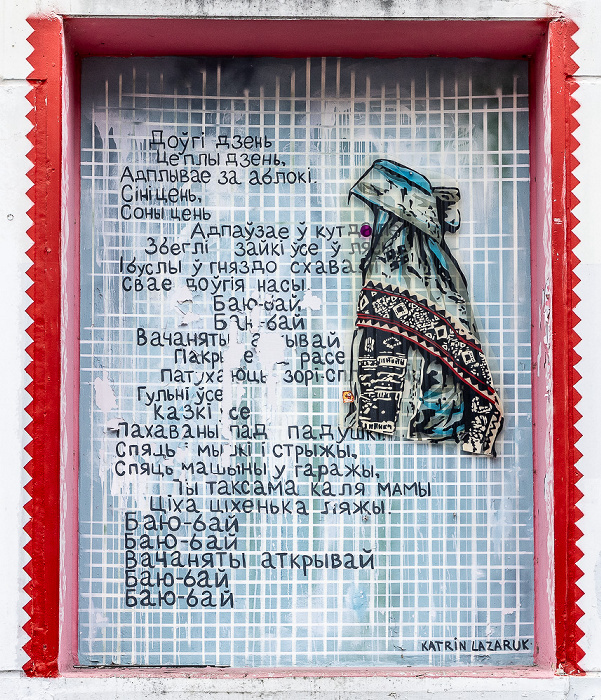 Доўгі дзень
Цёплы дзень,
Адплывае за аблокі.
Сініцень,
Соны цень
Адпаўзае ў кут
Збеглі зайкі ўсе ў
Ібуслы ў гняздо схава
Свае доўгія насы.
Баю-бай,
Баю-бай
Вачаняты
Патухаюць зоры
Гульні ўсе
Казкі
пад
Спяць і стрыжы,
Спяць машыны ў гаражы,
Ты таксама каля мамы
Ціха ціхенька ляжы.
Баю-бай
Баю-бай
Вачаняты аткрывай
Баю-бай
Баю-бай
KATRIN LAZARUK